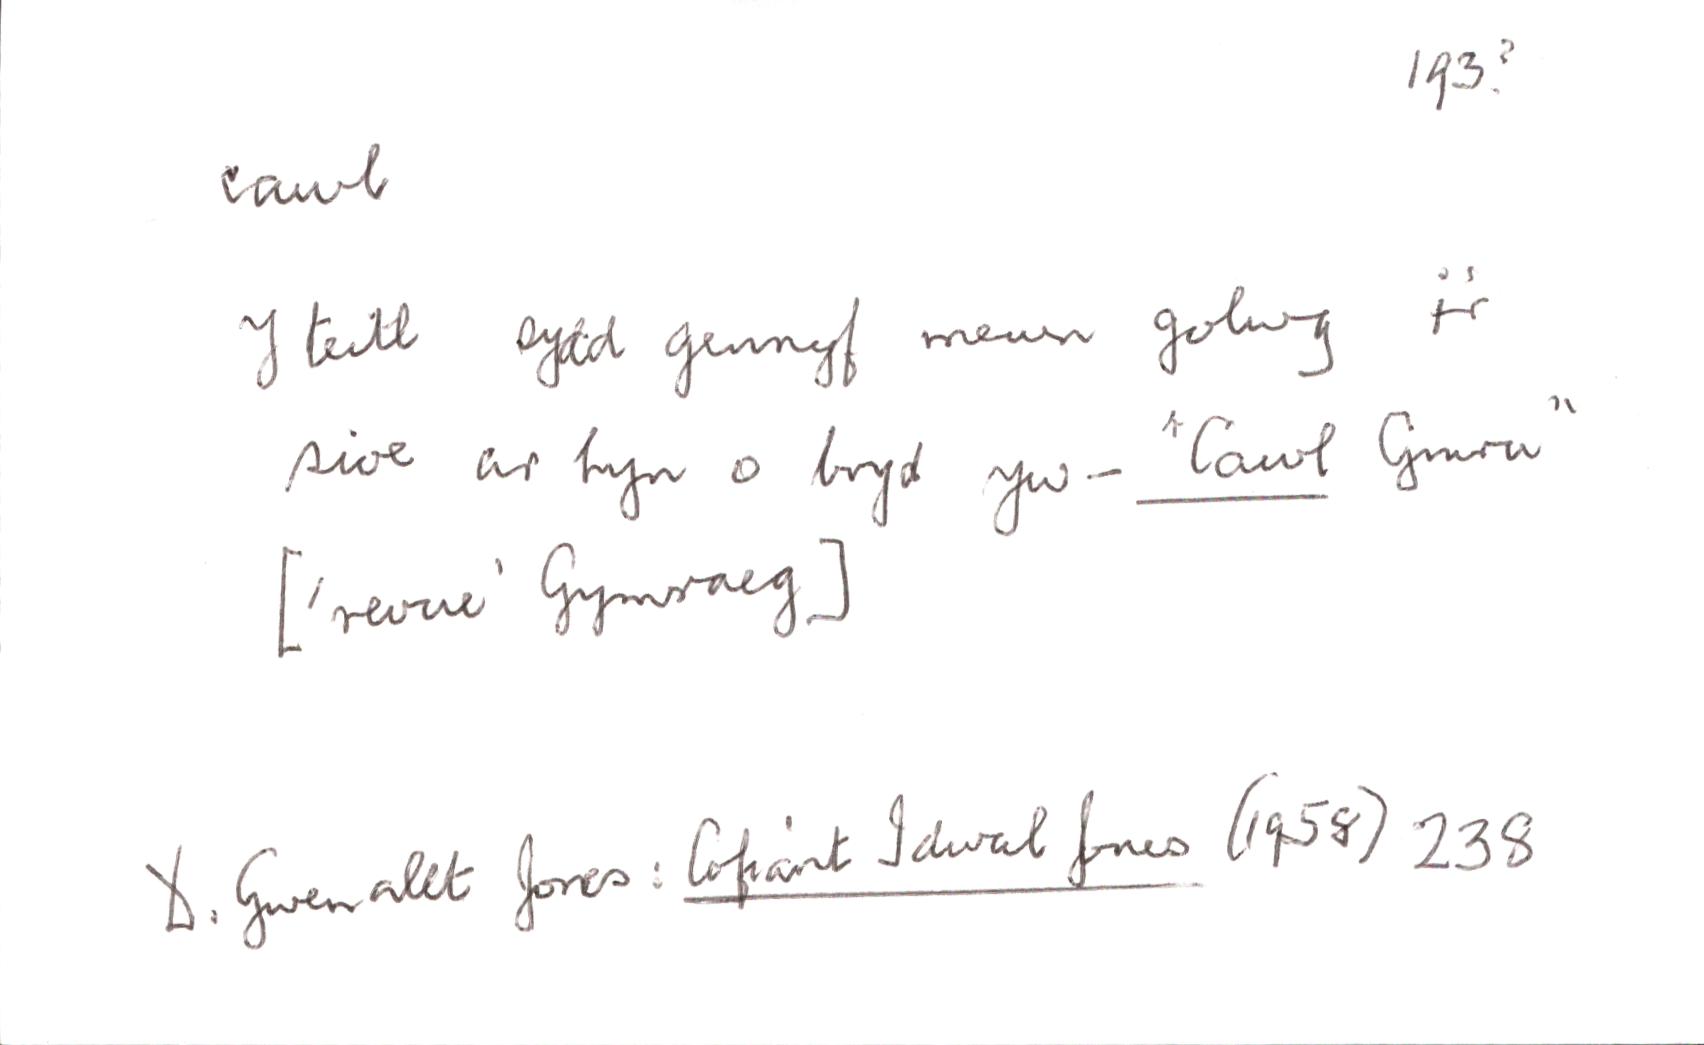 193?
cawl
Y teitl sydd gennyf mewn golwg i'r
sioe ar hyn o bryd yw - "Cawl Gymru"
['revue' Gymraeg]
D. Gwenallt Jones: Cofiant Idwal Jones (1958) 238